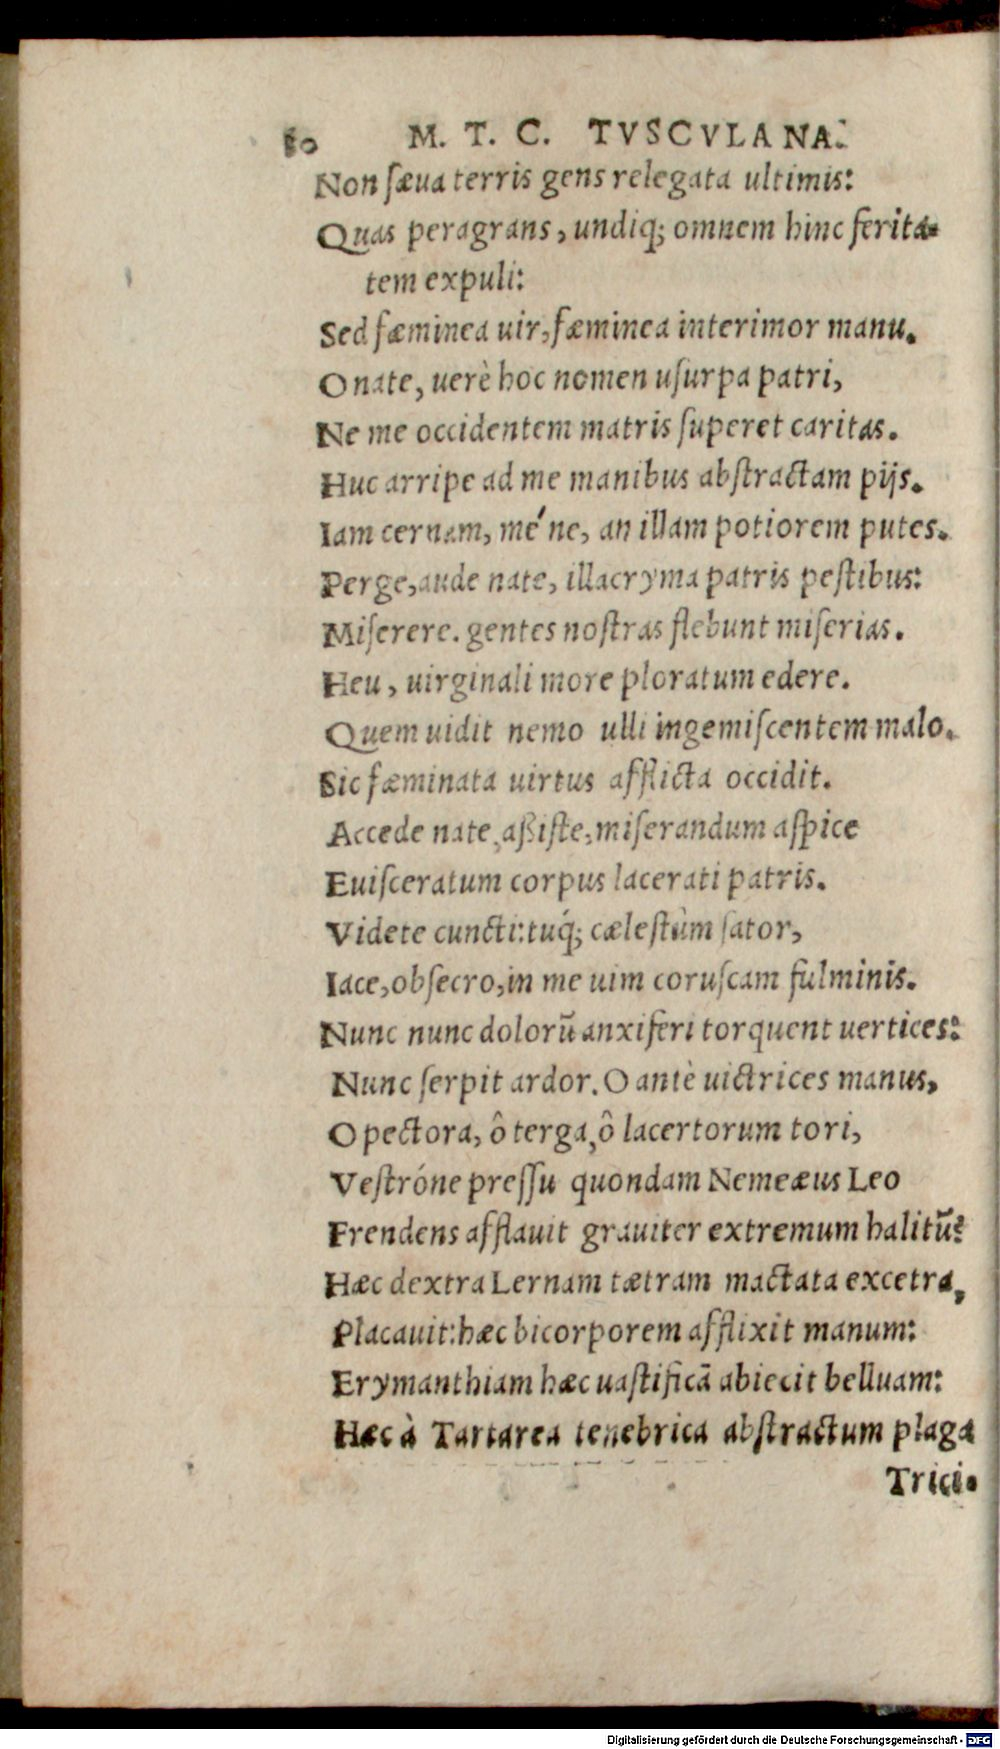 80 M. T. C. TVSCVLANA.
Non sæua terris gens relegata ultimis:
Quas peragrans, undiq; omnem hinc ferita-
tem expuli:
Sed fæminea uir, fæminea interimor manu.
O nate, uerè hoc nomen usurpa patri,
Ne me occidentem matris superet caritas.
Huc arripe ad me manibus abstractam pijs.
Iam cernam, me´ne, an illam potiorem putes.
Perge, aude nate, illacryma patris pestibus:
Miserere. gentes nostras flebunt miserias.
Heu, uirginali more ploratum edere.
Quem uidit nemo ulli ingemiscentem malo.
Sic fæminata uirtus afflicta occidit.
Accede nate, aßiste, miserandum aspice
Euisceratum corpus lacerati patris.
Videte cuncti: tuq́; cælestùm sator,
Iace, obsecro, in me uim coruscam fulminis.
Nunc nunc dolorū anxiferi torquent uertices:
Nunc serpit ardor. O antè uictrices manus,
O pectora, ô terga, ô lacertorum tori,
Vestróne pressu quondam Nemeæus Leo
Frendens afflauit grauiter extremum halitū?
Hæc dextra Lernam tætram mactata excetra,
Placauit: hæc bicorporem afflixit manum:
Erymanthiam hæc uastificā abiecit belluam:
Hæc à Tartarea tenebrica abstractum plaga
Trici-
Digitalisierung gefördert durch die Deutsche Forschungsgemeinschaft - DFG